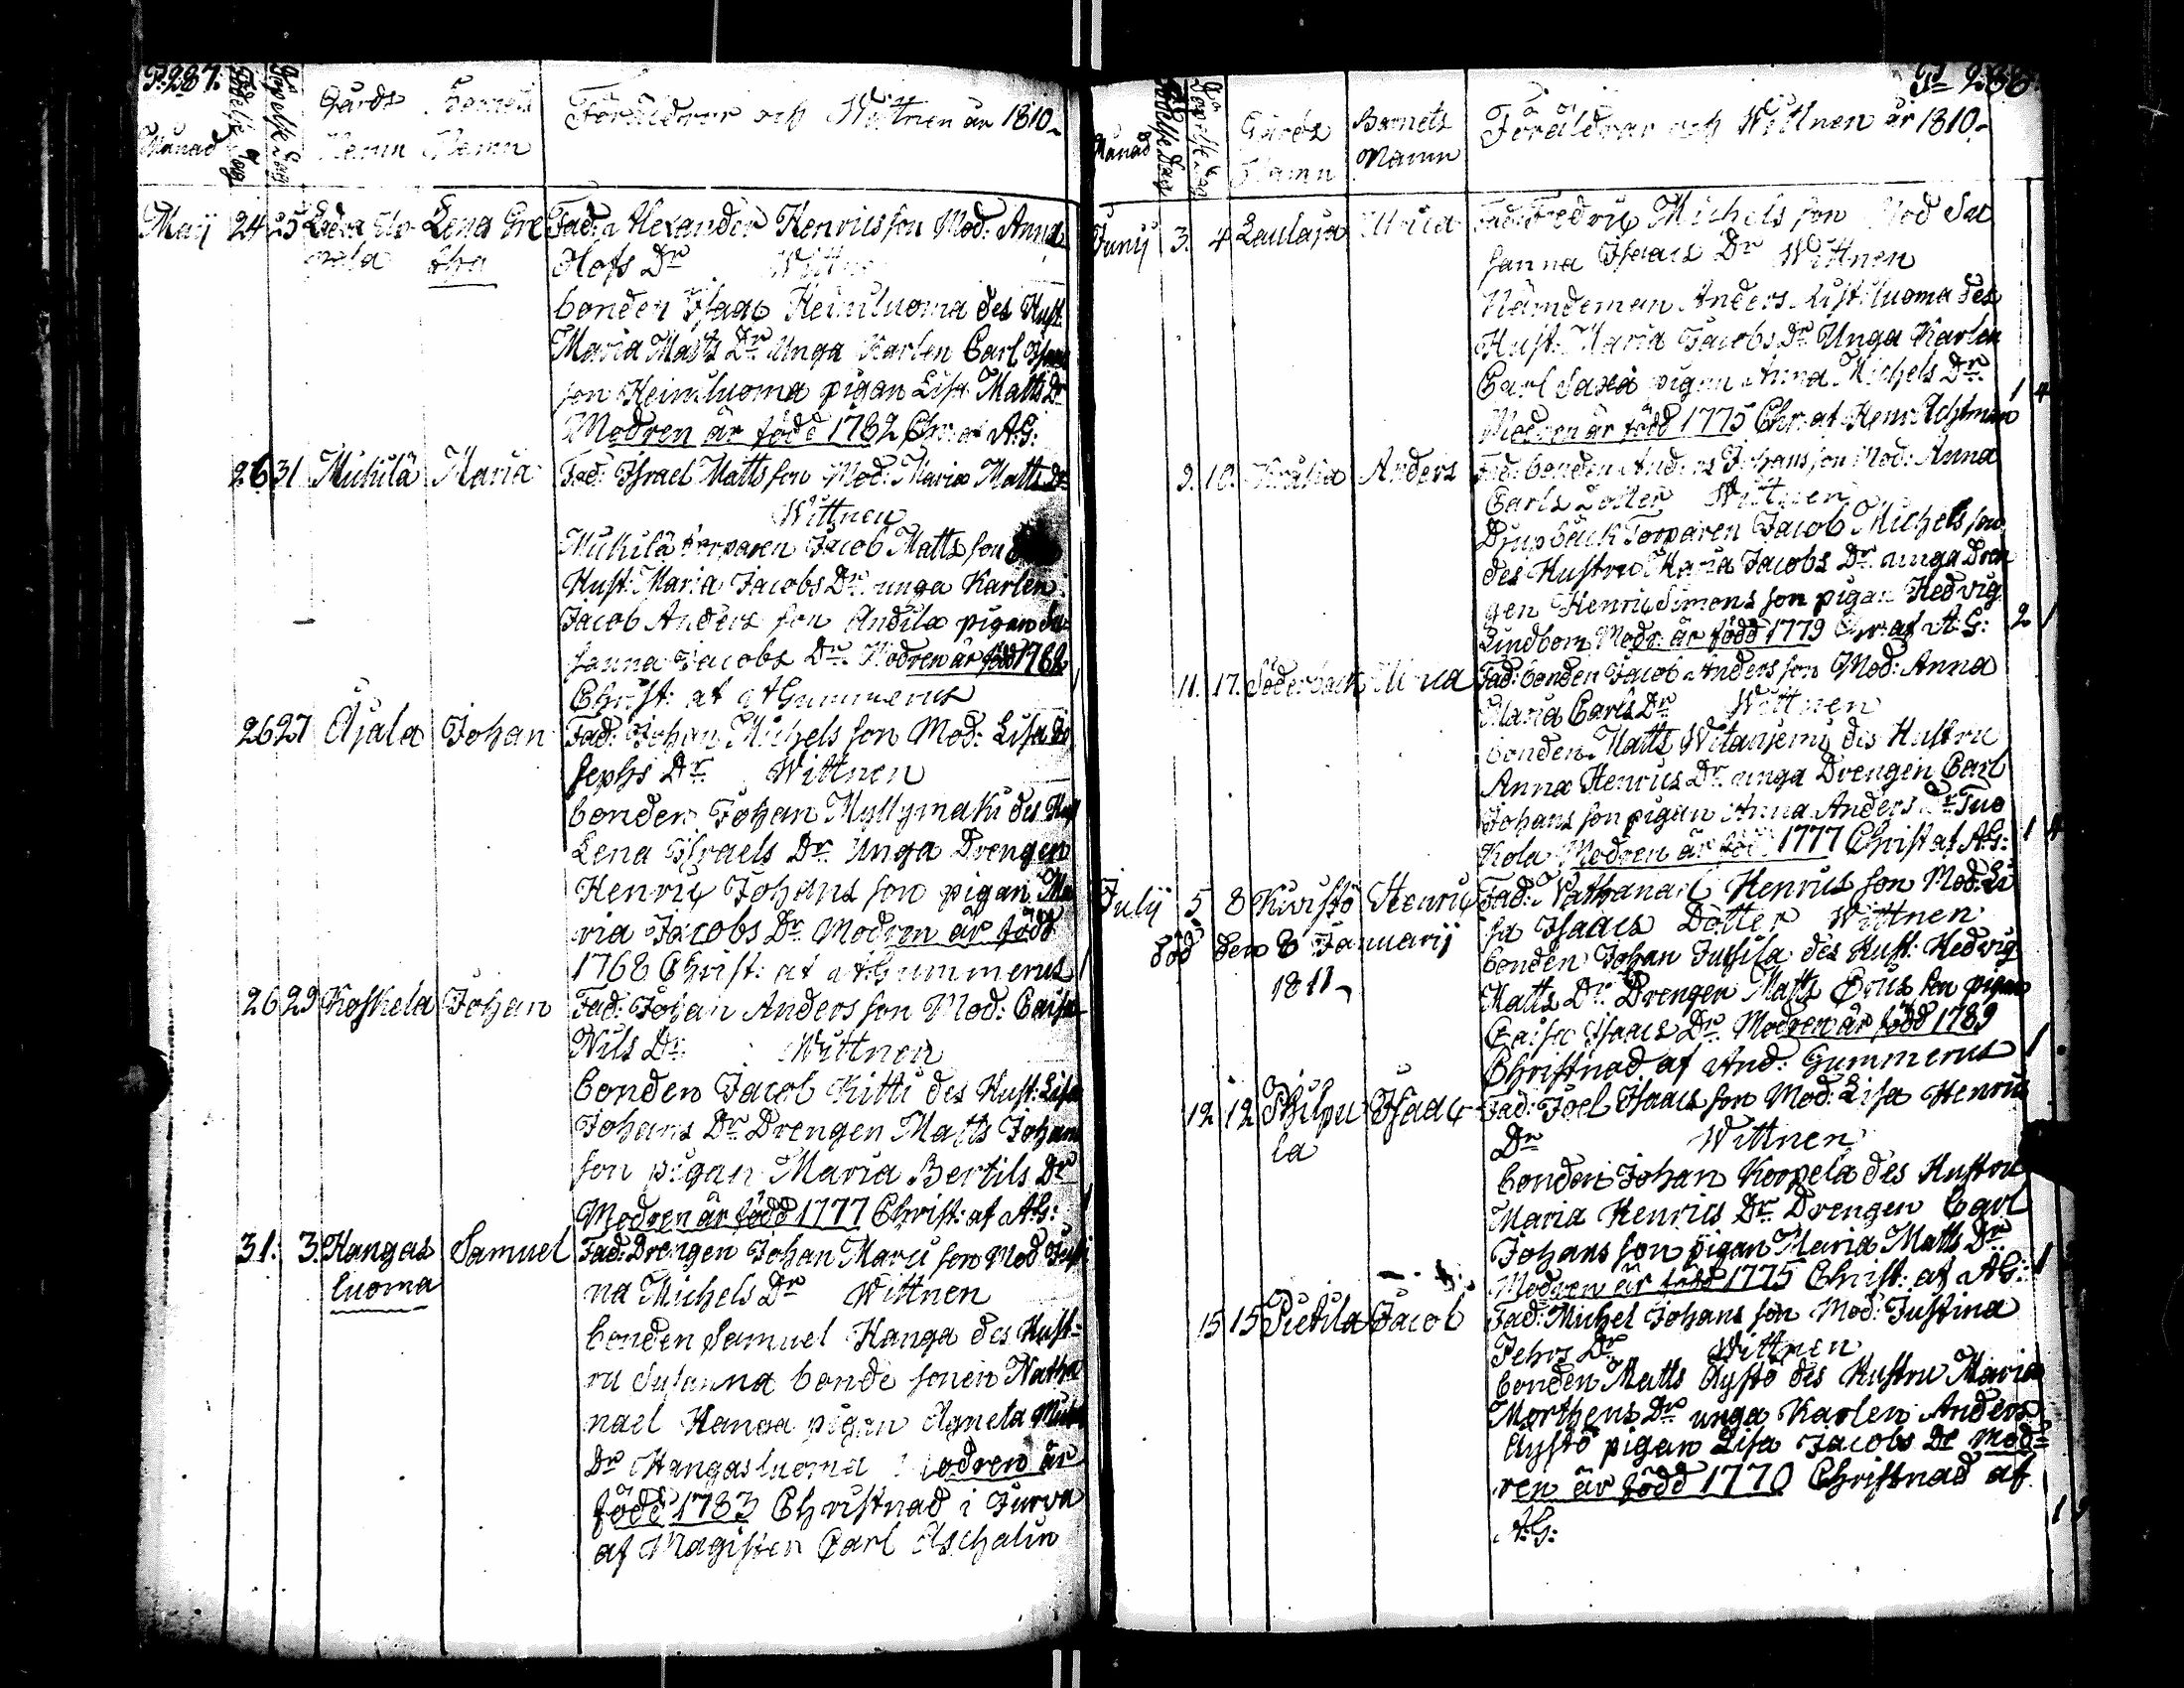 P. 287.
Månad Födelse Dag Döpelse Dag Gårds Namn Barnets Namn Föräldrar och Wittnen år 1810.
Maij 24 25 Lena Gre Fad: Alexander Henrics son Mod: Anna
tha Olofs Dr Wittnen
bonden Isaac Heiniluoma des Hust.
Maria Matts Dr Unga Karlen Carl Isaacs
son Heiniluoma pigan Lisa Matts Dr
Modren är född 1782 Chr: af A.G:
26 31 Mickilä Maria Fad: Israel Matts son Mod: Maria Matts Dr
Wittnen
Mickilä torparen Jacob Matts son
Hust: Maria Jacobs Dr unga Karlen
Jacob Anders son Andila pigan Su
sanna Jacobs Dr. Modren är född 1782
Christ: af A Gummerus
26 27 Ojala Johan Fad: Johan Michels son Mod: Lisa Jo
sephs Dr. Wittnen
bonden Johan Myllymäki des Hust
Lena Israels Dr. Unga Drengen
Henric Johans son pigan Ma
ria Jacobs Dr. Modren är född
1768 Christ: af A: Gummerus
26 29 Koskela Johan Fad: Johan Anders son Mod: Caisa
Nils Dr. Wittnen
bonden Jacob Kitti des Hust: Lisa
Johans Dr. Drengen Matts Johans
son pigan Maria Bertils Dr
Modren är född 1777 Christ: af A.G:
31. 3. Hangas Samuel Fad: Drengen Johan Marci son Mod Justi
luoma na Michels Dr Wittnen
bonden Samuel Hanga des Hust=
ru Susanna bonde sonen Natha
nael Hanga pigan Agneta
Dr Hangasluoma Modren är
född 1783 Christnad i Jurva
af Magistern Carl Aschalin
Pa 288.
Månad Födelse Dag Döpelse Dag Gårds Namn Barnets Namn Föräldrar och Wittnen år 1810.
Junij 3. 4 Laulaja Maria Fad: Fredric Michels son Mod Su
sanna Isaacs Dr Wittnen
Nämndeman Anders Listiluoma des
Hust: Maria Jacobs Dr Unga Karlen
Carl pigan Anna Michels Dr.
Modren är född 1775 Chr: af Henr: Achtman 1 4
9. 10. Anders Fad: bonden Anders Johans son Mod: Anna
Carls Dotter Wittnen
Djupbäck Torparen Jacob Michels son
des Hustru Maria Jacobs Dr. unga Dren
gen Henric Simons son pigan Hedvig
Lindbom Modr: är född 1779 Chr: af A.G: 2 1
11. 17. Söderback Maria Fad: bonden Jacob Anders son Mod: Anna
Maria Carls Dr Wittnen
bonden Matts Witaniemi des Hustru
Anna Henrics Dr. unga Drengen Carl
Johans son pigan Anna Anders Dr. Tuo
Kola Modren är född 1777 Christ af A.G: 1 4
Julij 5 8 Kivistö Henric Fad: Nathanael Henrics son Mod: Li
sa Isaacs Dotter Wittnen
död den 8 Januarij 1811
bonden Johan Jutila des Hust: Hedvig
Matts Dr. Drengen Matts Erics son pigan
Caisa Isaacs Dr. Modren är född 1789
Christnad af And: Gummerus 1
12 12 Philpu Isaac Fad: Joel Isaacs son Mod: Lisa Henrics
la Dr Wittnen
bonden Johan Korpela des Hustru
Maria Henrics Dr Drengen Carl
Johans son pigan Maria Matts Dr
Modren är född 1775 Christ: af A.G: 1
15 15 Pietila Jacob Fad: Michel Johans son Mod: Justina
Pehrs Dr Wittnen
bonden Matts Äystö des Hustru Maria
Morthens Dr unga Karlen Anders
Äystö pigan Lisa Jacobs Dr Mod=
ren är född 1770 Christnad af
A:G: